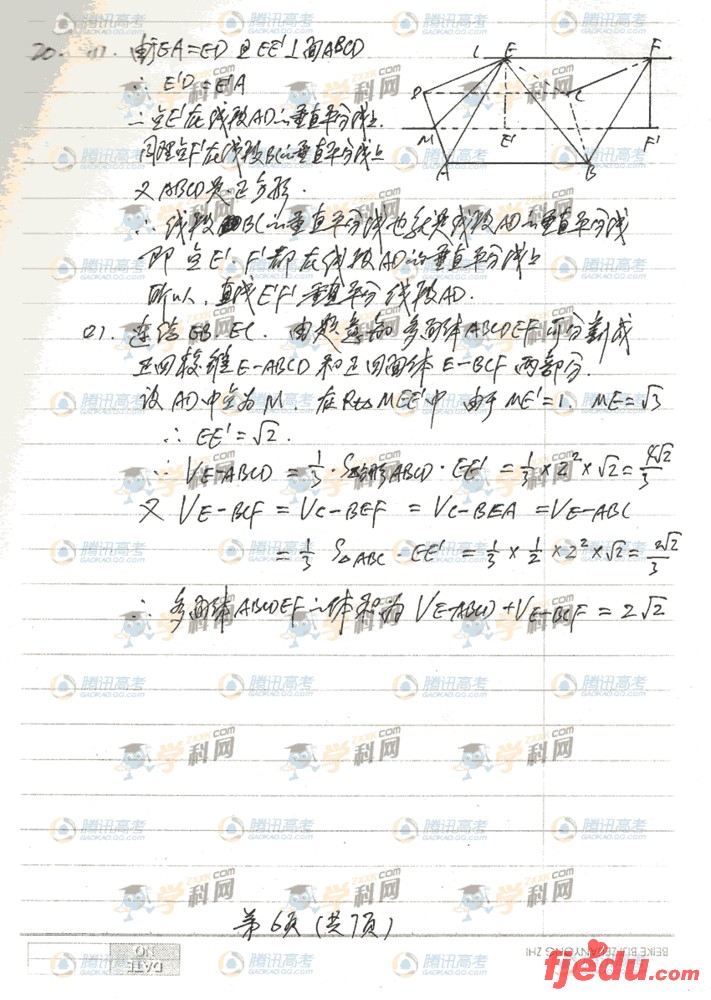 20. (1). 由于EA=ED 且 EE'⊥面ABCD
∴ E'D=E'A
∴点E'在线段AD的垂直平分线上.
同理点F'在线段BC的垂直平分线上
又 ABCD是正方形.
∴ 线段BC的垂直平分线也就是线段AD的垂直平分线
即 点E'. F'都在线段AD的垂直平分线上
所以, 直线E'F'垂直平分线段AD.
(2). 连结 EB. EC. 由题意知 多面体ABCDEF可分割成
正四棱锥E-ABCD和正四面体E-BCF两部分.
设AD中点为M. 在Rt△MEE'中 由于ME'=1. ME=√3
∴ EE'=√2.
∴ V E-ABCD = 1/3 · S正方形ABCD · EE' = 1/3 × 2² × √2 = 4√2/3
又 V E-BCF = V C-BEF = V C-BEA = V E-ABC
= 1/3 S△ABC · EE' = 1/3 × 1/2 × 2² × √2 = 2√2/3
∴ 多面体ABCDEF的体积为 V E-ABCD + V E-BCF = 2√2
L E F
D C
M E' F'
A B
第6页(共7页)
DATE
NO
BEIKE BIJI ZHUANYONG ZHI
fjedu.com
腾讯高考
GAOKAO.QQ.COM
学科网
ZXXK.com